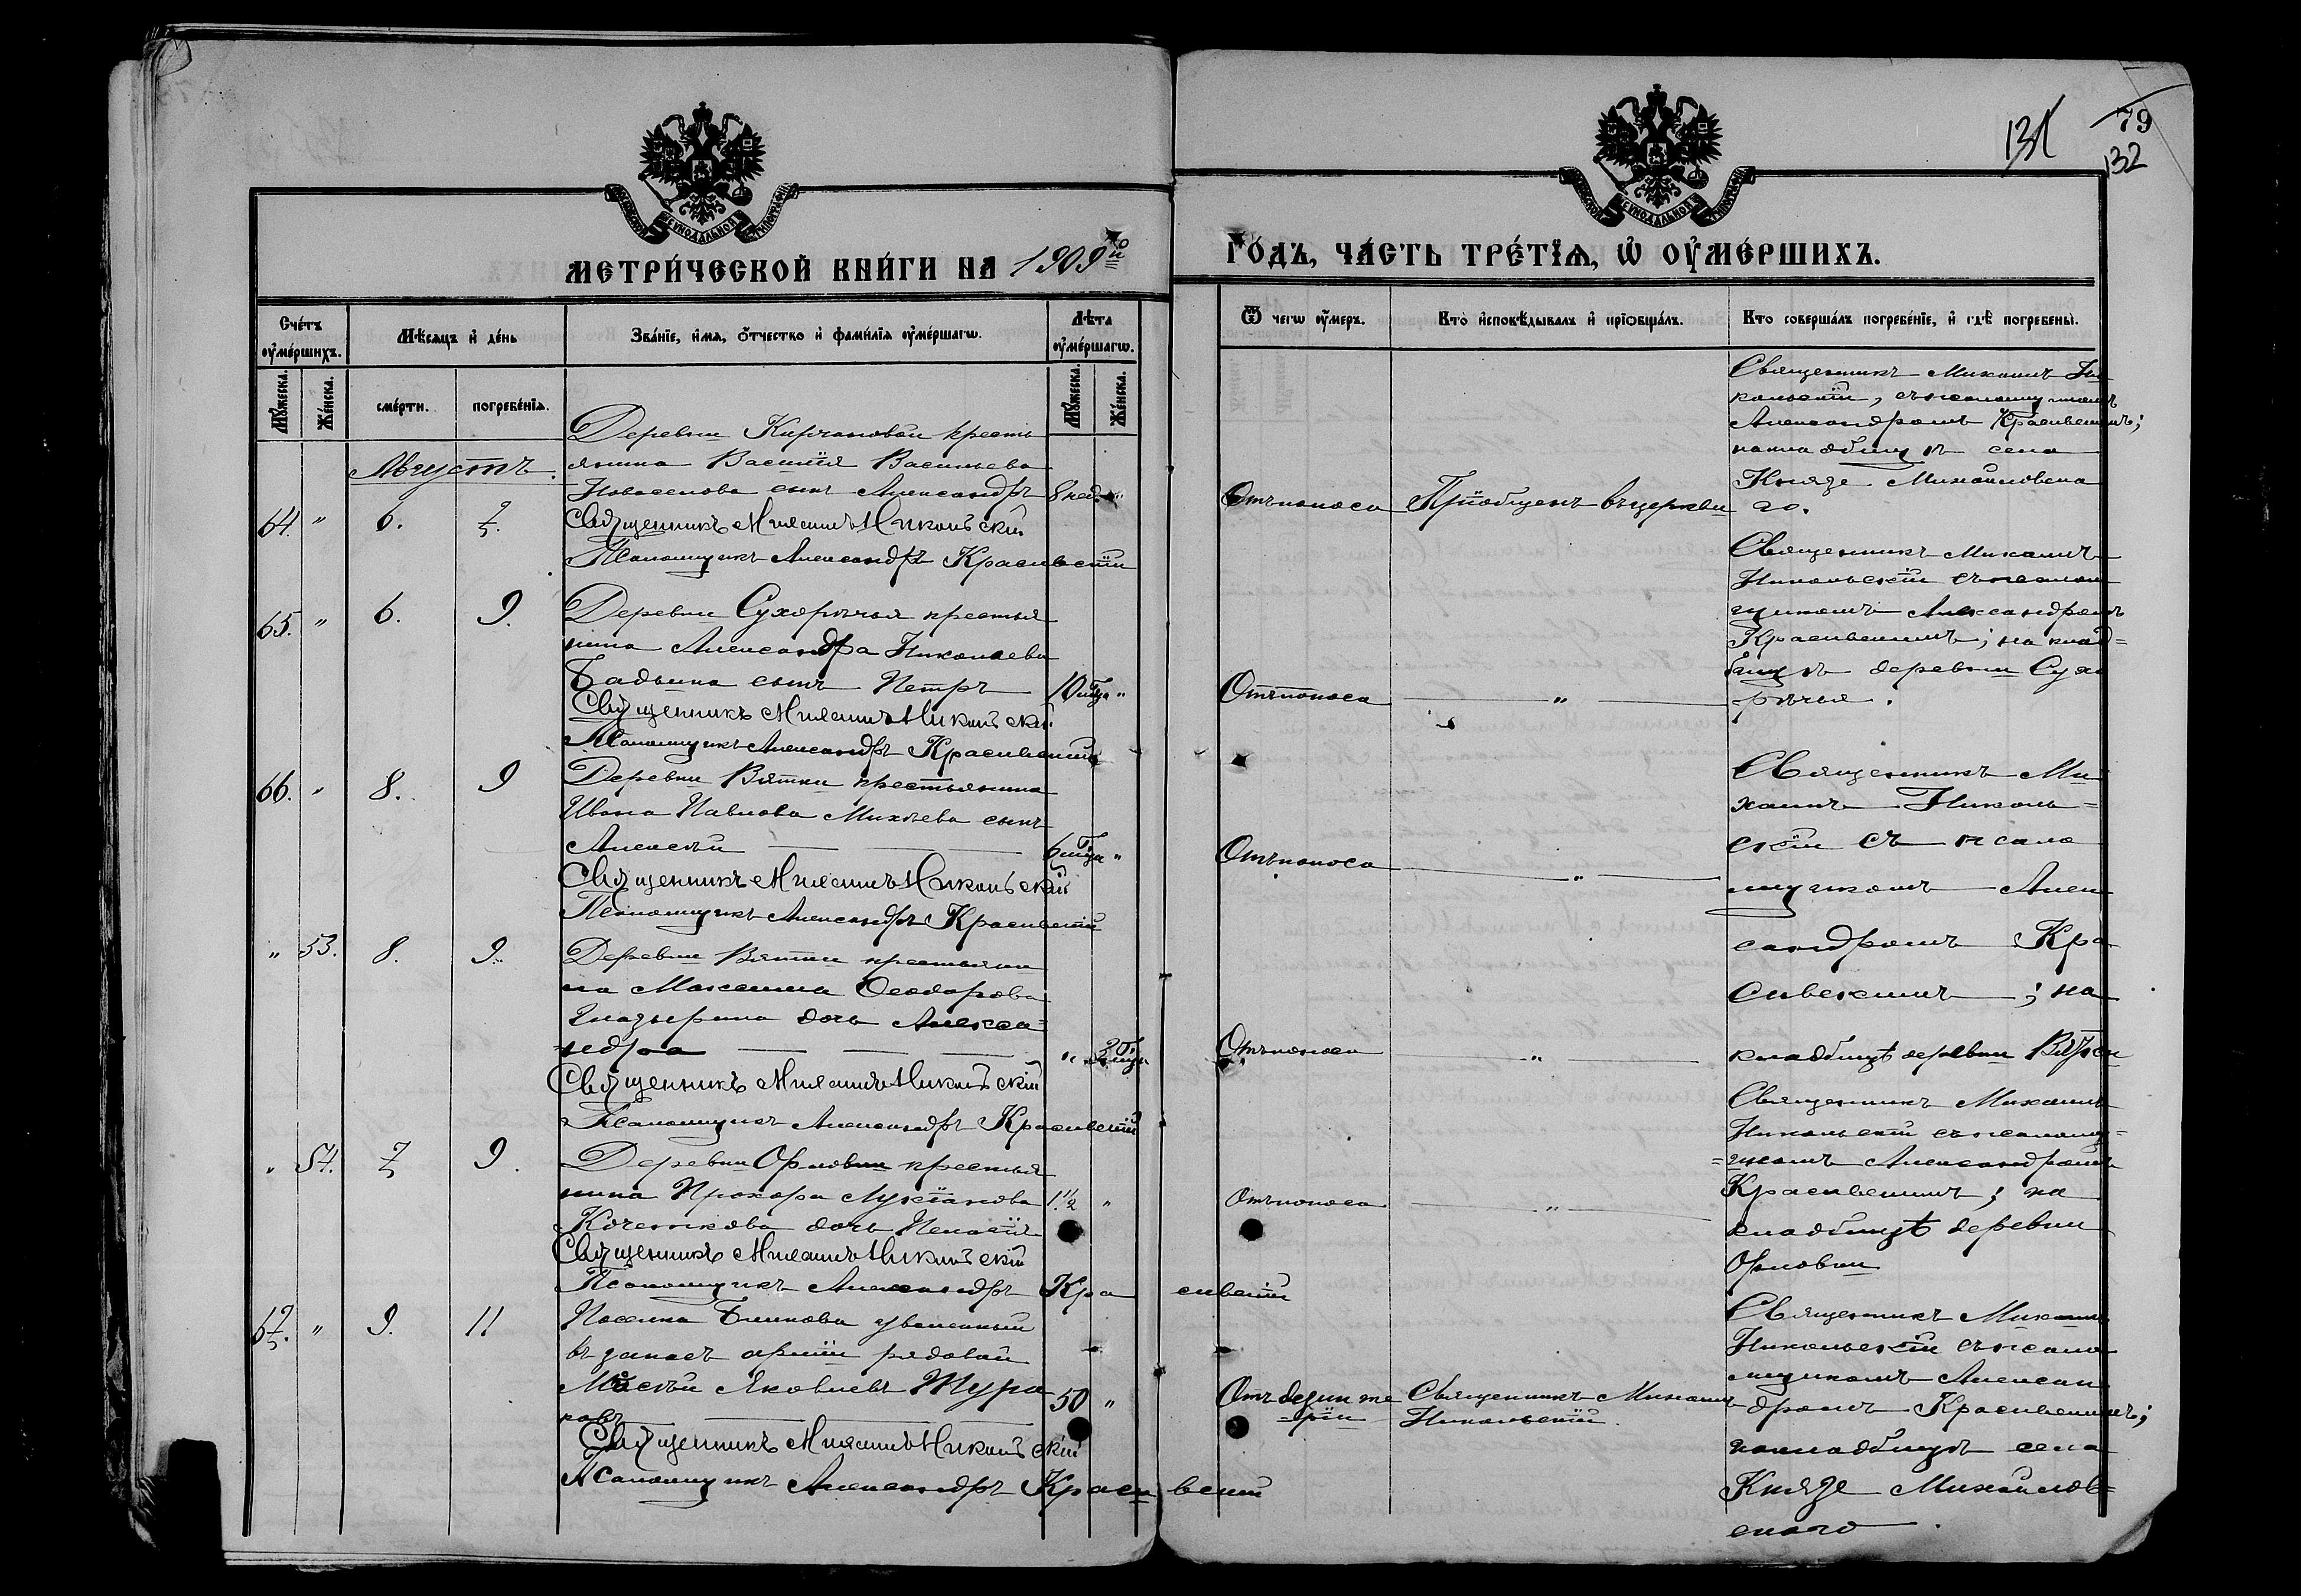 131
79
132
МЕТРИ́ЧЕСКОЙ КНИ́ГИ НА 1909й
ГО́ДЪ, ЧА́СТЬ ТРЕ́ТЇѦ, Ѡ҆ ОУ҆МЕ́РШИХЪ.
Сче́тъ оу҆ме́ршихъ.
Мѣ́сѧцъ и҆ де́нь
Зва́нїе, и҆́мѧ, ѻ҆́тчество и҆ фами́лїѧ оу҆ме́ршагѡ.
Лѣ́та оу҆ме́ршагѡ.
Ѿ чегѡ̀ оу҆́меръ.
Кто̀ и҆сповѣ́дывалъ и҆ прїѻбща́лъ.
Кто̀ соверша́лъ погребе́нїе, и҆ гдѣ̀ погребены̀.
Мꙋ́жеска.
Же́нска.
сме́рти.
погребе́нїѧ.
Мꙋ́жеска.
Же́нска.
Августъ.
64. " 6. 7.
Деревни Кирчановой кресть
янина Василія Васильева
Новоселова сынъ Александръ 8 нед.
Священникъ Михаилъ Никольскій
Псаломщикъ Александръ Красивскій
Отъ поноса
Пріобщенъ въ церкви
Священникъ Михаилъ Ни
кольскій, съ псаломщикомъ
Александромъ Красивскимъ;
на кладбищѣ села
Князе-Михайловска
го.
65. " 6. 9.
Деревни Сухорѣчья крестья
нина Александра Николаева
Бадьина сынъ Петръ 10 мѣс "
Священникъ Михаилъ Никольскій
Псаломщикъ Александръ Красивскій
Отъ поноса
"
Священникъ Михаилъ
Никольскій съ псалом
щикомъ Александромъ
Красивскимъ; на клад=
бищѣ деревни Сухо
рѣчья.
66. " 8. 9
Деревни Вятки крестьянина
Ивана Павлова Михѣева сынъ
Алексѣй 6 мѣс "
Священникъ Михаилъ Никольскій
Псаломщикъ Александръ Красивскій
Отъ поноса
"
Священникъ Ми
хаилъ Николь=
скій съ псало
мщикомъ Алек
сандромъ Кра
сивскимъ; на
кладбищѣ деревни Вятки
" 53. 8. 9.
Деревни Вятки крестьяни
на Максима Ѳеодорова
Глазырина дочь Алекса=
ндра " 2 мѣс
Священникъ Михаилъ Никольскій
Псаломщикъ Александръ Красивскій
Отъ поноса
"
" 54. 7 9.
Деревни Орловки крестья
нина Прохора Лукіанова 1 1/2 "
Коченкова дочь Пелагія
Священникъ Михаилъ Никольскій
Псаломщикъ Александръ Красивскій
Отъ поноса
"
Священникъ Михаилъ
Никольскій съ псаломщ=
=икомъ Александромъ
Красивскимъ; на
кладбищѣ деревни
Орловки
67. " 9. 11
Поселка Блинова уволенный
въ запасъ арміи рядовой
Яковлевъ Тура
ковъ 50 "
Священникъ Михаилъ Никольскій
Псаломщикъ Александръ Красивскій
Отъ дезинте
=ріи
Священникъ Михаилъ
Никольскій.
Священникъ Михаилъ
Никольскій съ псало
мщикомъ Алексан
дромъ Красивскимъ;
на кладбищѣ села
Князе-Михайлов=
скаго.